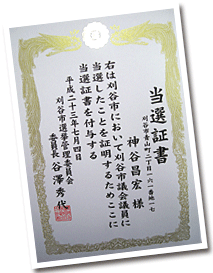 当選証書
刈谷市青山町二丁目一六一番地一七
神谷昌宏 様
右は刈谷市において刈谷市議会議員に
当選したことを証明するためここに
当選証書を付与する
平成二十三年七月四日
刈谷市選挙管理委員会
委員長 谷澤秀代